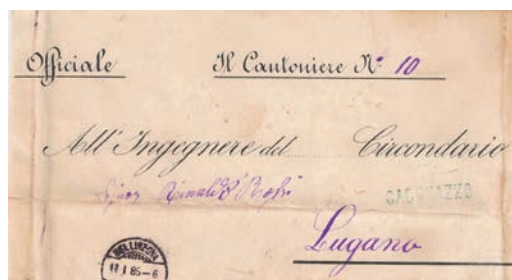 Officiale Il Cantoniere N.º 10
All' Ingegnere del Circondario
CADENAZZO
Lugano
BELLINZONA
17.I.85-6